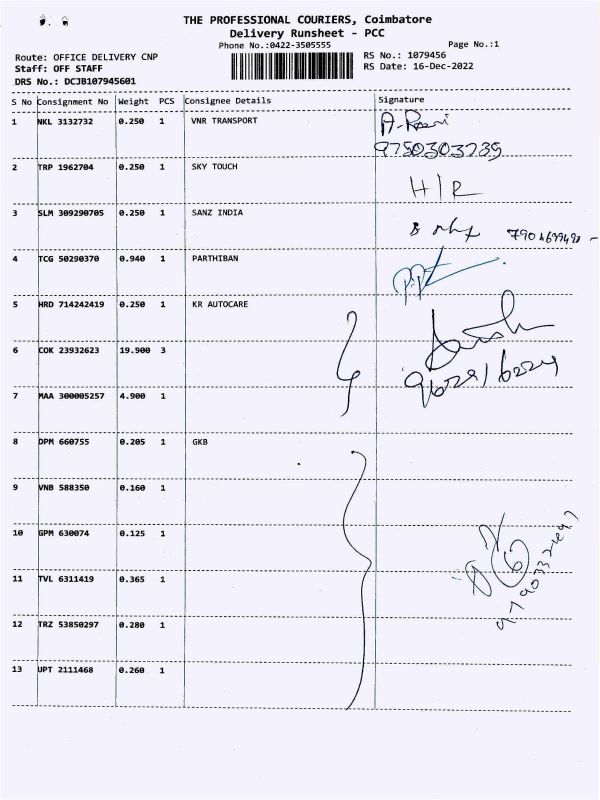 THE PROFESSIONAL COURIERS, Coimbatore
Delivery Runsheet - PCC
Phone No.:0422-3505555
Page No.:1
Route: OFFICE DELIVERY CNP
RS No.: 1079456
Staff: OFF STAFF
RS Date: 16-Dec-2022
DRS No.: DCJB107945601
S No Consignment No Weight PCS Consignee Details Signature
1 NKL 3132732 0.250 1 VNR TRANSPORT
9750303735
2 TRP 1962704 0.250 1 SKY TOUCH H/R
3 SLM 309290705 0.250 1 SANZ INDIA
4 TCG 50290370 0.940 1 PARTHIBAN
5 HRD 714242419 0.250 1 KR AUTOCARE
6 COK 23932623 19.900 3
7 MAA 300005257 4.900 1
8 DPM 660755 0.205 1 GKB
9 VNB 588350 0.160 1
10 GPM 630074 0.125 1
11 TVL 6311419 0.365 1
12 TRZ 53850297 0.280 1
13 UPT 2111468 0.260 1